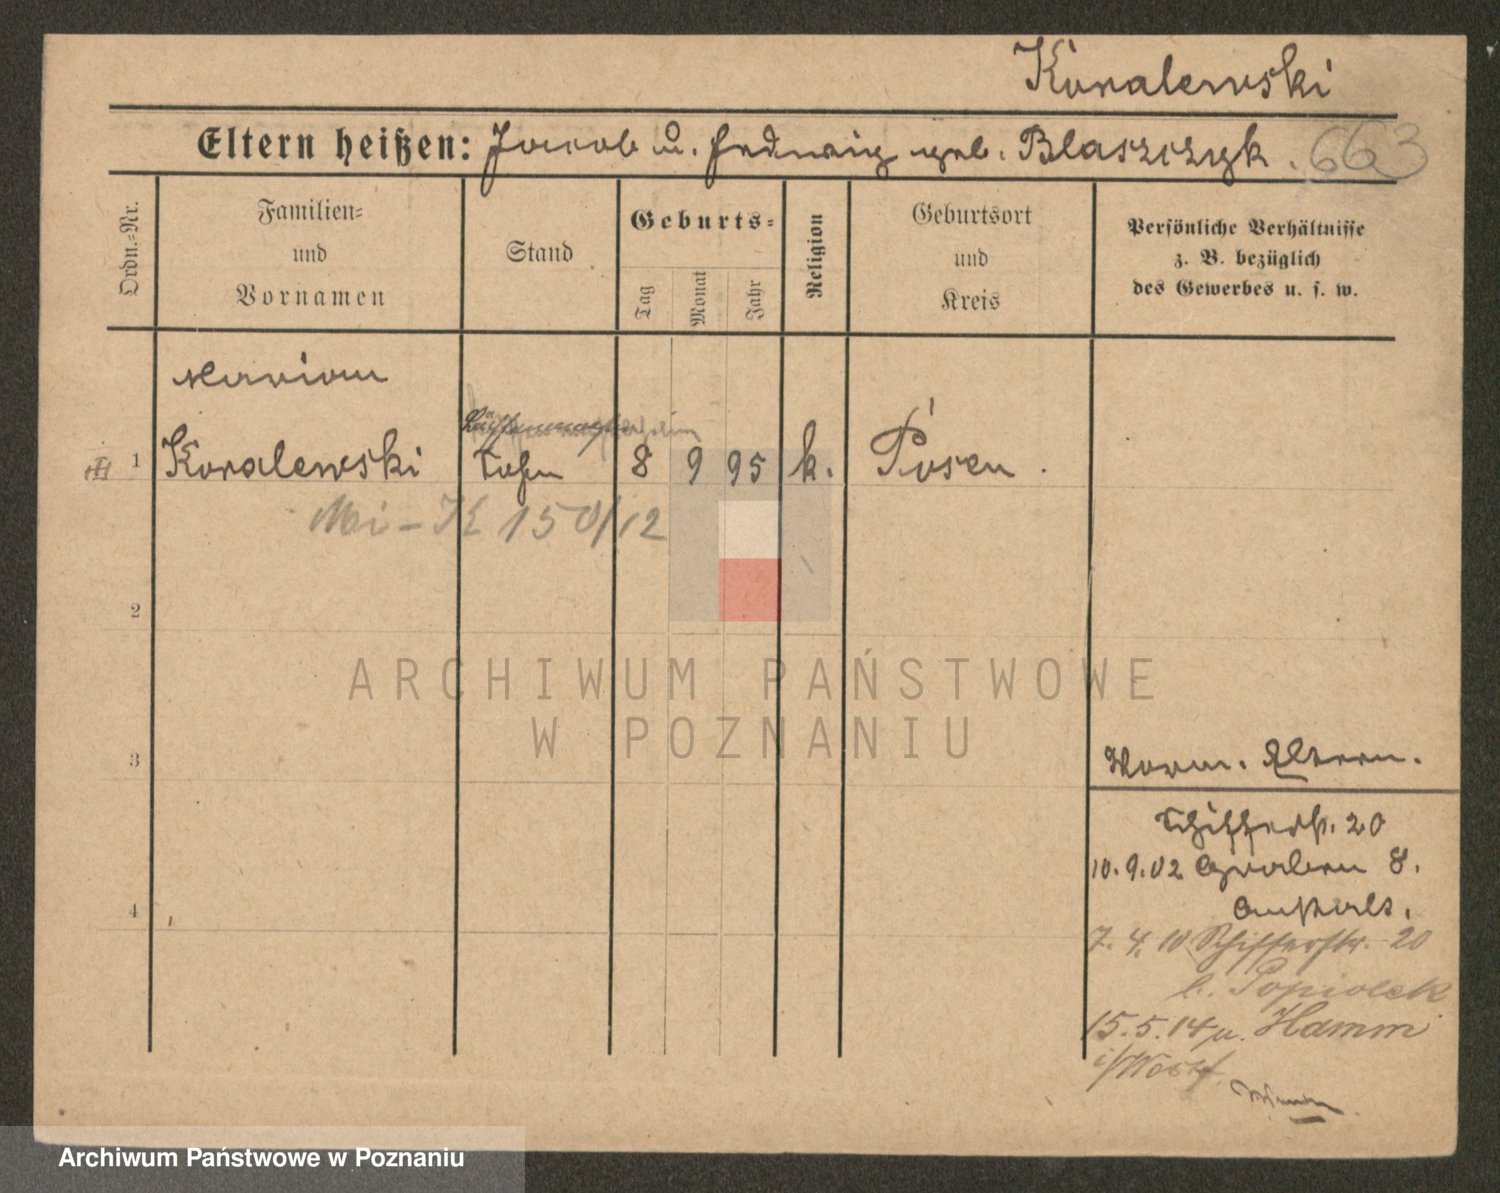 Kowalewski
Eltern heißen: Jacob u. Hedwig geb. Blaszczyk. 663
Ordn.-Nr.
Familien- und Vornamen
Stand
Geburts-
Tag
Monat
Jahr
Religion
Geburtsort und Kreis
Persönliche Verhältnisse z. B. bezüglich des Gewerbes u. s. w.
Marian
1 Kowalewski Sohn 8 9 95 k. Posen.
150/12
2
3
4
Worm. Eltern.
Schifferstr. 20
10.9.02 Graben 8.
Anstalt.
7. 4. 10 Schifferstr. 20
b. Popiolek
15.5.14 n. Hamm
i/Westf.
ARCHIWUM PAŃSTWOWE
W POZNANIU
Archiwum Państwowe w Poznaniu